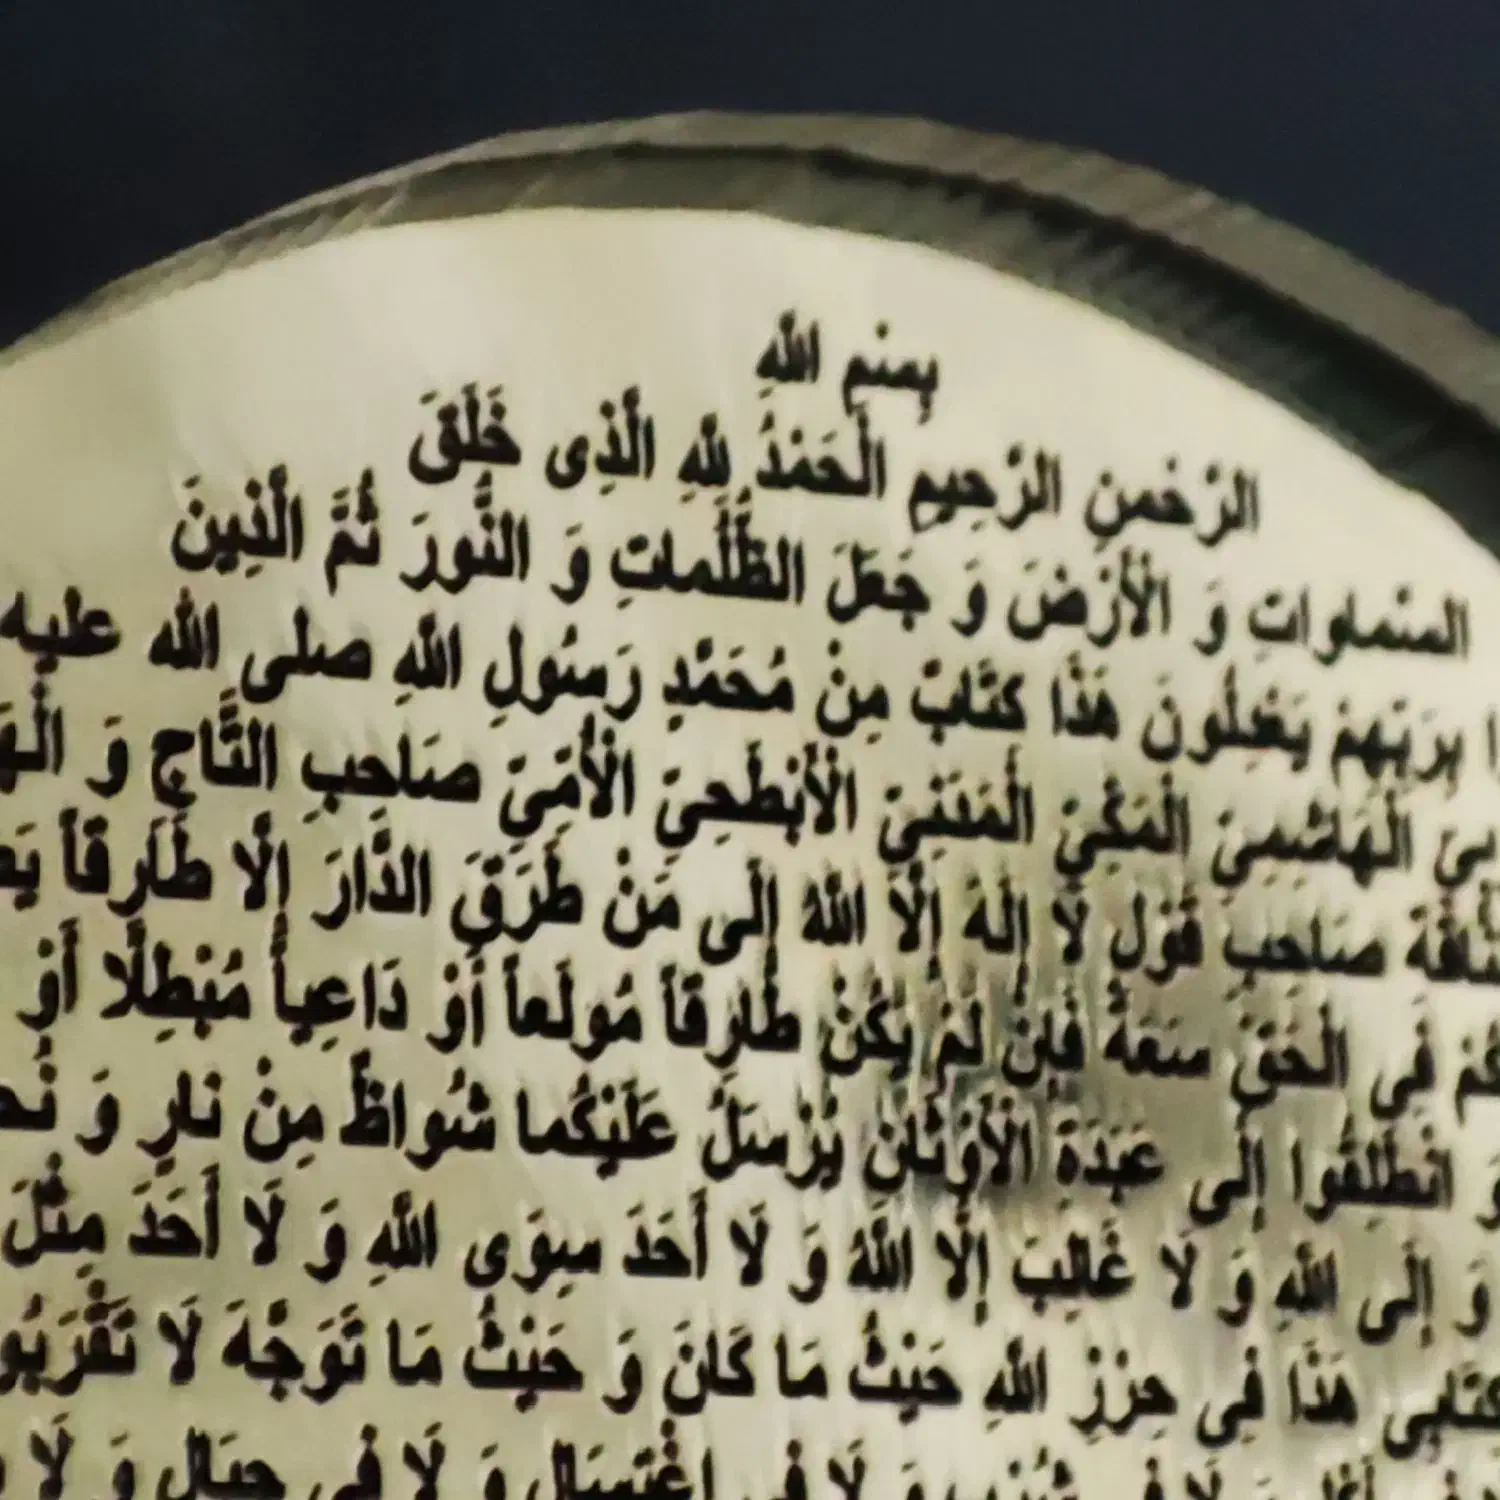 بِسْمِ اللَّهِ
الرَّحْمنِ الرَّحِيمِ الْحَمْدُ لِلَّهِ الَّذِى خَلَقَ
السَّماواتِ وَ الْأَرْضَ وَ جَعَلَ الظُّلُماتِ وَ النُّورَ ثُمَّ الَّذِينَ
بِرَبِّهِمْ يَعْدِلُونَ هَذَا كِتَابٌ مِنْ مُحَمَّدٍ رَسُولِ اللَّهِ صلى الله عليه
الْهَاشِمِيِّ الْمَكِّيِّ الْمَدَنِيِّ الْأَبْطَحِيِّ الْأُمِّيِّ صَاحِبِ التَّاجِ وَ
صَاحِبِ قَوْلِ لَا إِلَهَ إِلَّا اللَّهُ إِلَى مَنْ طَرَقَ الدَّارَ إِلَّا طَارِقاً
فِي الْحَقِّ سَعَةً فَإِنْ لَمْ يَكُنْ طَارِقاً مُولَعاً أَوْ دَاعِياً مُبْطِلًا أَوْ
انْطَلِقُوا إِلَى عَبَدَةِ الْأَوْثَانِ يُرْسَلُ عَلَيْكُما شُواظٌ مِنْ نارٍ وَ
وَ إِلَى اللَّهِ وَ لَا غَالِبَ إِلَّا اللَّهُ وَ لَا أَحَدَ سِوَى اللَّهِ وَ لَا أَحَدَ مِثْلَ
كِتَابِي هَذَا فِي حِرْزِ اللَّهِ حَيْثُ مَا كَانَ وَ حَيْثُ مَا تَوَجَّهَ لَا
وَ لَا فِي اغْتِسَالٍ وَ لَا فِي جِبَالٍ وَ لَا